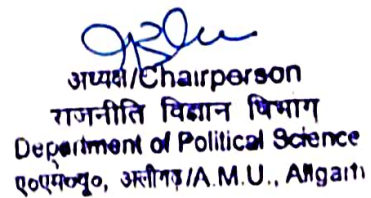 अध्यक्ष/Chairperson
राजनीति विज्ञान विभाग
Department of Political Science
ए०एम०यू०, अलीगढ़/A.M.U., Aligarh